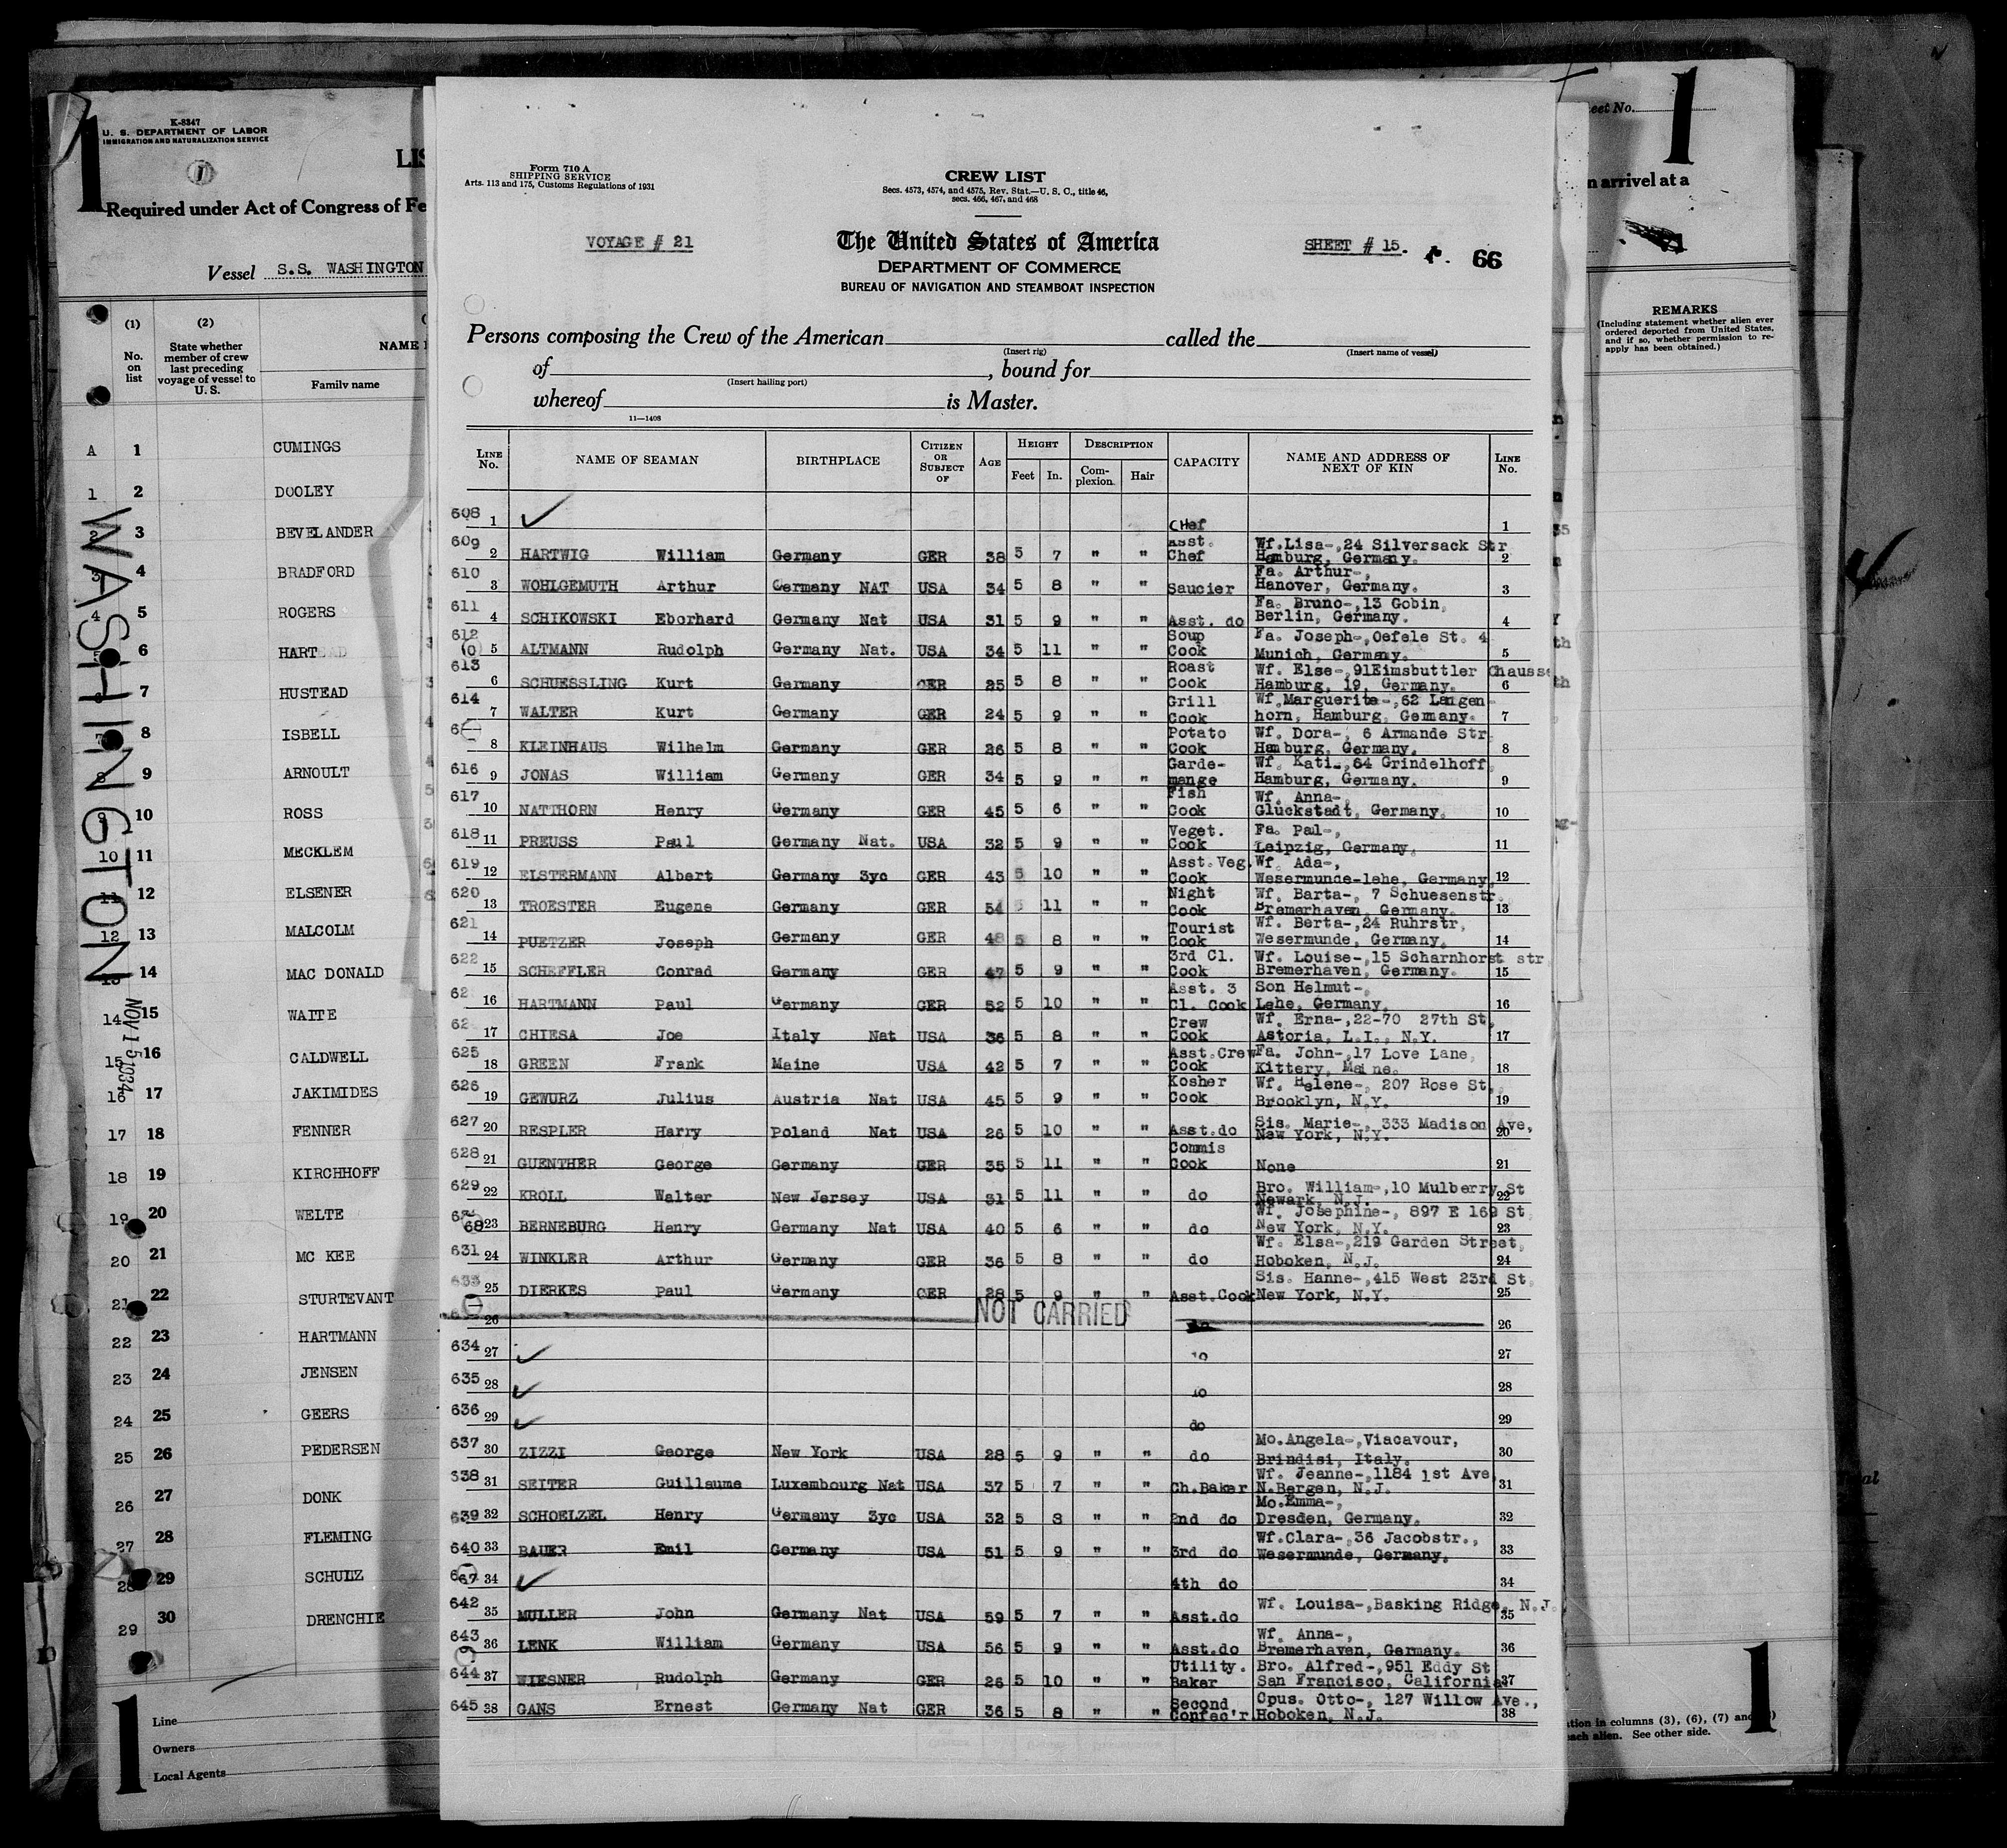 K-8347
U. S. DEPARTMENT OF LABOR
IMMIGRATION AND NATURALIZATION SERVICE
1
Required under Act of Congress of Fe
Vessel S.S. WASHINGTON
(1) (2)
No. on list
State whether member of crew last preceding voyage of vessel to U. S.
NAME
Family name
A 1 CUMINGS
1 2 DOOLEY
2 3 BEVELANDER
3 4 BRADFORD
4 5 ROGERS
5 6 HART
6 7 HUSTEAD
7 8 ISBELL
8 9 ARNOULT
9 10 ROSS
10 11 MECKLEM
11 12 ELSENER
12 13 MALCOLM
13 14 MAC DONALD
14 15 WAITE
15 16 CALDWELL
16 17 JAKIMIDES
17 18 FENNER
18 19 KIRCHHOFF
19 20 WELTE
20 21 MC KEE
21 22 STURTEVANT
22 23 HARTMANN
23 24 JENSEN
24 25 GEERS
25 26 PEDERSEN
26 27 DONK
27 28 FLEMING
28 29 SCHULZ
29 30 DRENCHIE
WASHINGTON
NOV 15 1934
1
Line
Owners
Local Agents
Form 710 A
SHIPPING SERVICE
Arts. 113 and 175, Customs Regulations of 1931
CREW LIST
Secs. 4573, 4574, and 4575, Rev. Stat.—U. S. C., title 46,
secs. 466, 467, and 468
VOYAGE # 21
The United States of America
SHEET # 15. 66
DEPARTMENT OF COMMERCE
BUREAU OF NAVIGATION AND STEAMBOAT INSPECTION
Persons composing the Crew of the American called the
(Insert rig) (Insert name of vessel)
of , bound for
(Insert hailing port)
whereof is Master.
11—1408
LINE No. NAME OF SEAMAN BIRTHPLACE CITIZEN OR SUBJECT OF AGE HEIGHT Feet In. DESCRIPTION Complexion Hair CAPACITY NAME AND ADDRESS OF NEXT OF KIN LINE No.
608 1 ✓ Chef 1
609 2 HARTWIG William Germany GER 38 5 7 " " Asst. Chef Wf.Lisa-,24 Silversack Str Hamburg, Germany. 2
610 3 WOHLGEMUTH Arthur Germany NAT USA 34 5 8 " " Saucier Fa. Arthur-, Hanover, Germany. 3
611 4 SCHIKOWSKI Eborhard Germany Nat USA 31 5 9 " " Asst. do Fa. Bruno-,13 Gobin, Berlin, Germany. 4
612 5 ALTMANN Rudolph Germany Nat. USA 34 5 11 " " Soup Cook Fa. Joseph-,Oefele St. 4 Munich, Germany. 5
613 6 SCHUESSLING Kurt Germany GER 25 5 8 " " Roast Cook Wf. Else-,91Eimsbuttler Chausse Hamburg, 19, Germany. 6
614 7 WALTER Kurt Germany GER 24 5 9 " " Grill Cook Wf.Marguerite-,62 Langenhorn, Hamburg, Germany. 7
8 KLEINHAUS Wilhelm Germany GER 26 5 8 " " Potato Cook Wf. Dora-, 6 Armande Str. Hamburg, Germany. 8
616 9 JONAS William Germany GER 34 5 9 " " Garde-mange Wf. Kati-,64 Grindelhoff, Hamburg, Germany. 9
617 10 NATTHORN Henry Germany GER 45 5 6 " " Fish Cook Wf. Anna-, Gluckstadt, Germany. 10
618 11 PREUSS Paul Germany Nat. USA 32 5 9 " " Veget. Cook Fa. Pal-, Leipzig, Germany. 11
619 12 ELSTERMANN Albert Germany 3yc GER 43 5 10 " " Asst.Veg. Cook Wf. Ada-, Wesermunde-lehe, Germany. 12
620 13 TROESTER Eugene Germany GER 54 5 11 " " Night Cook Wf. Barta-, 7 Schuesenstr. Bremerhaven, Germany. 13
621 14 PUETZER Joseph Germany GER 48 5 8 " " Tourist Cook Wf. Berta-,24 Ruhrstr, Wesermunde, Germany. 14
622 15 SCHEFFLER Conrad Germany GER 47 5 9 " " 3rd Cl. Cook Wf. Louise-,15 Scharnhorst str Bremerhaven, Germany. 15
16 HARTMANN Paul Germany GER 52 5 10 " " Asst. 3 Cl. Cook Son Helmut-, Lehe, Germany. 16
17 CHIESA Joe Italy Nat USA 36 5 8 " " Crew Cook Wf. Erna-,22-70 27th St, Astoria, L.I., N.Y. 17
625 18 GREEN Frank Maine USA 42 5 7 " " Asst.Crew Cook Fa. John-,17 Love Lane, Kittery, Maine. 18
626 19 GEWURZ Julius Austria Nat USA 45 5 9 " " Kosher Cook Wf. Helene-, 207 Rose St, Brooklyn, N.Y. 19
627 20 RESPLER Harry Poland Nat USA 26 5 10 " " Asst.do Sis. Marie-, 333 Madison Ave, New York, N.Y. 20
628 21 GUENTHER George Germany GER 35 5 11 " " Commis Cook None 21
629 22 KROLL Walter New Jersey USA 31 5 11 " " do Bro. William-,10 Mulberry St Newark, N.J. 22
23 BERNEBURG Henry Germany Nat USA 40 5 6 " " do Wf. Josephine-, 897 E 169 St, New York, N.Y. 23
631 24 WINKLER Arthur Germany GER 36 5 8 " " do Wf. Elsa-,219 Garden Street, Hoboken, N.J. 24
25 DIERKES Paul Germany GER 28 5 9 " " Asst.Cook Sis. Hanne-,415 West 23rd St, New York, N.Y. 25
26 NOT CARRIED 26
634 27 ✓ do 27
635 28 ✓ do 28
636 29 ✓ do 29
637 30 ZIZZI George New York USA 28 5 9 " " do Mo.Angela-,Viacavour, Brindisi, Italy. 30
638 31 SEITER Guillaume Luxembourg Nat USA 37 5 7 " " Ch.Baker Wf. Jeanne-,1184 1st Ave, N.Bergen, N.J. 31
639 32 SCHOELZEL Henry Germany 3yc USA 32 5 8 " " 2nd do Mo.Emma-, Dresden, Germany. 32
640 33 BAUER Emil Germany USA 51 5 9 " " 3rd do Wf.Clara-,36 Jacobstr., Wesermunde, Germany. 33
34 ✓ 4th do 34
642 35 MULLER John Germany Nat USA 59 5 7 " " Asst.do Wf. Louisa-,Basking Ridge, N.J. 35
643 36 LENK William Germany USA 56 5 9 " " Asst.do Wf. Anna-, Bremerhaven, Germany. 36
644 37 WIESNER Rudolph Germany GER 26 5 10 " " Utility. Baker Bro. Alfred-,951 Eddy St San Francisco, California 37
645 38 GANS Ernest Germany Nat GER 36 5 8 " " Second Confec'r Cpus. Otto-, 127 Willow Ave., Hoboken, N.J. 38
eet No.
1
n arrival at a
REMARKS
(Including statement whether alien ever ordered deported from United States, and if so, whether permission to reapply has been obtained.)
1
ation in columns (3), (6), (7) and
ach alien. See other side.